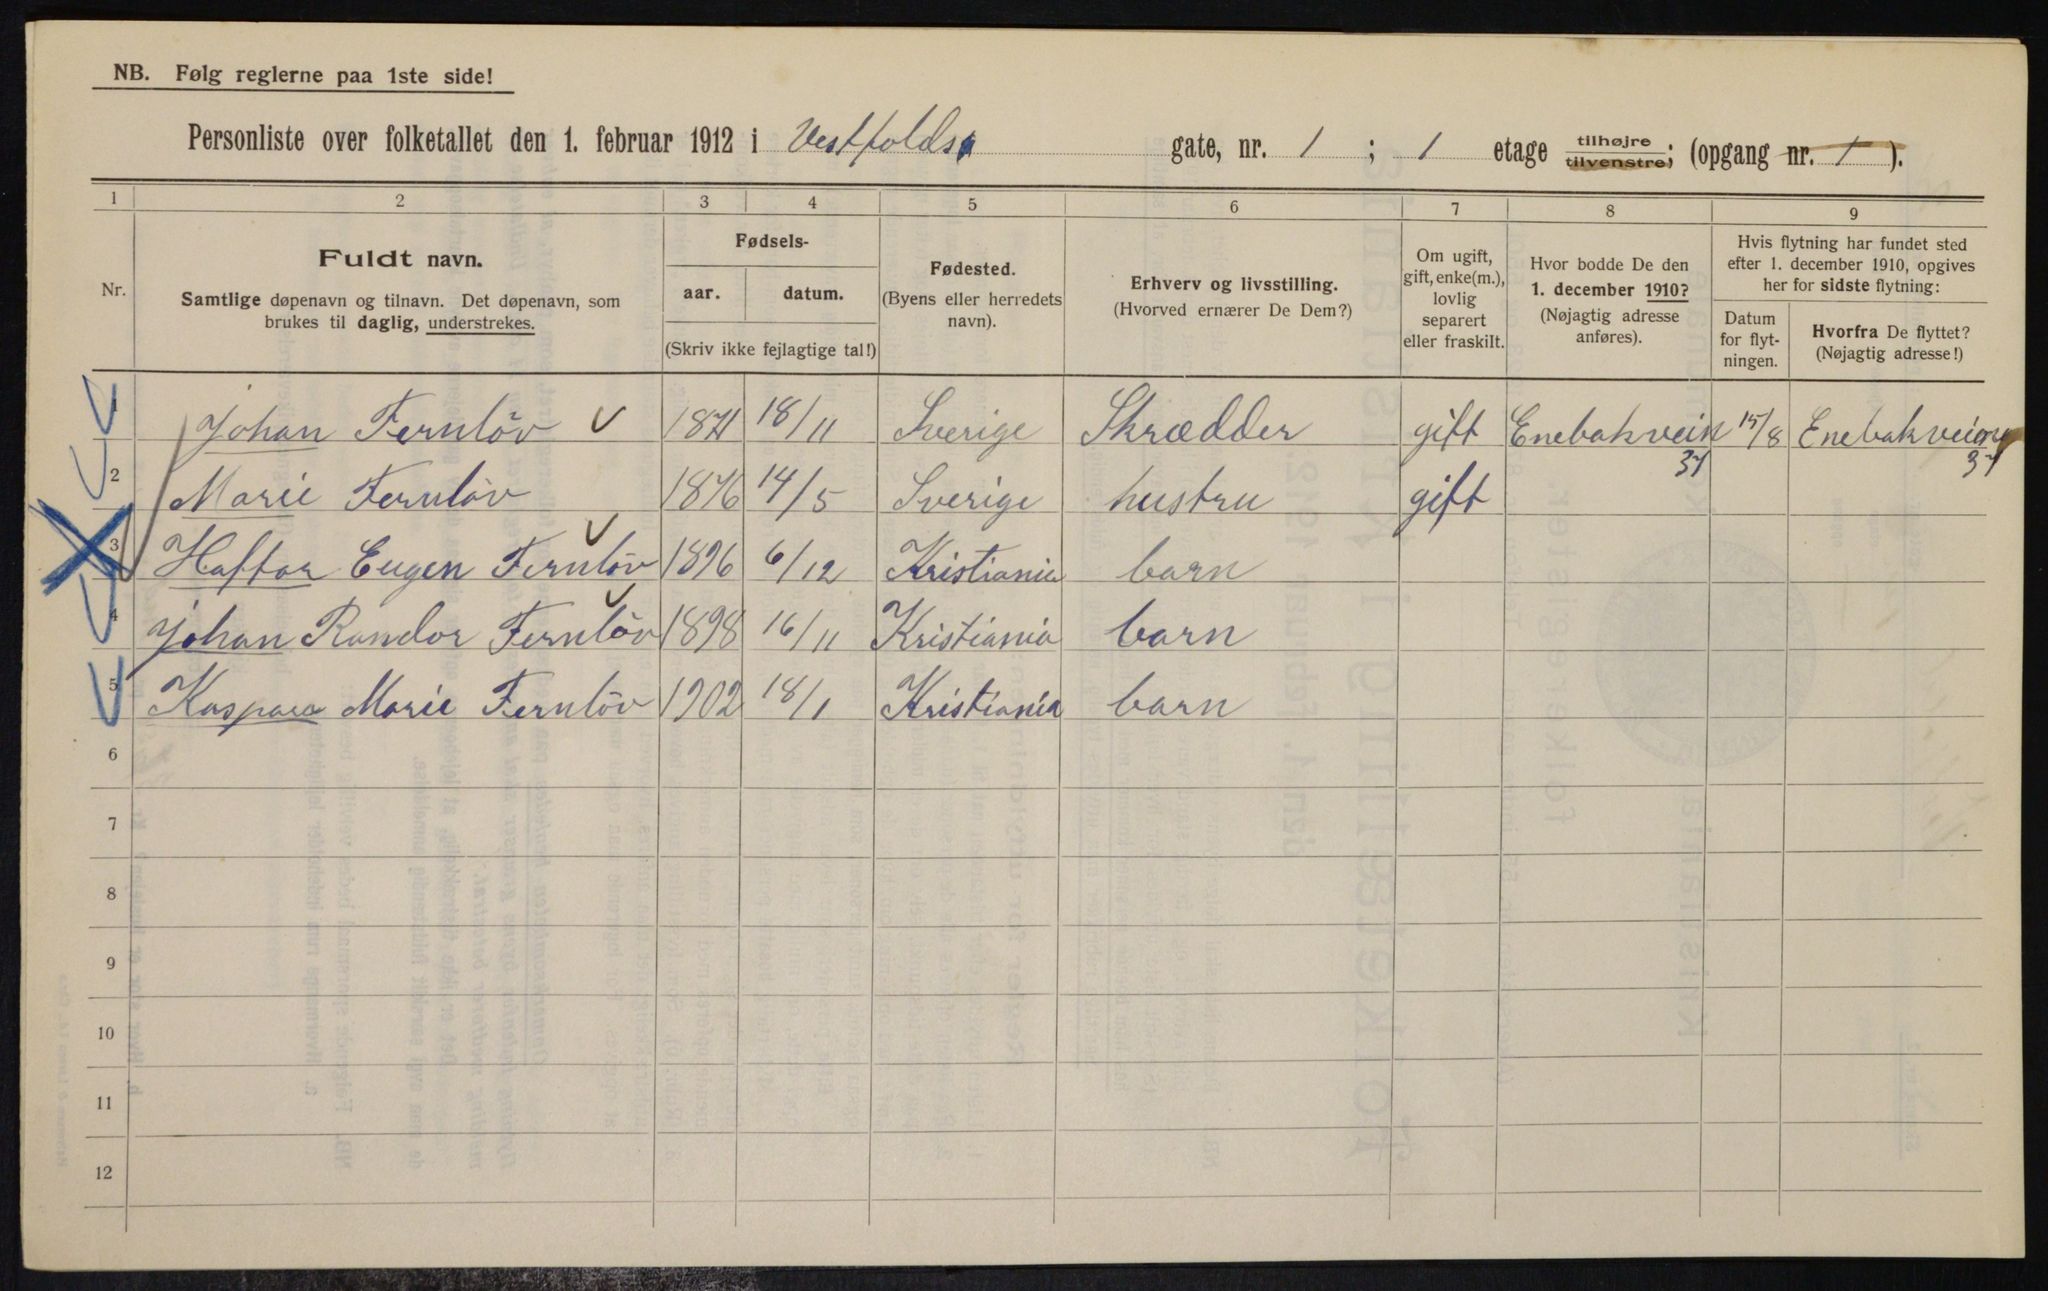 NB. Følg reglerne paa 1ste side!
Personliste over folketallet den 1. februar 1912 i Vestfolds gate, nr. 1 ; 1 etage tilhøjre tilvenstre; (opgang nr. 1 ).
1 2 3 4 5 6 7 8 9
Nr.
Fuldt navn.
Samtlige døpenavn og tilnavn. Det døpenavn, som
brukes til daglig, understrekes.
Fødsels-
aar. datum.
(Skriv ikke fejlagtige tal!)
Fødested.
(Byens eller herredets
navn).
Erhverv og livsstilling.
(Hvorved ernærer De Dem?)
Om ugift,
gift, enke(m.),
lovlig
separert
eller fraskilt.
Hvor bodde De den
1. december 1910?
(Nøjagtig adresse
anføres).
Hvis flytning har fundet sted
efter 1. december 1910, opgives
her for sidste flytning:
Datum
for flyt-
ningen.
Hvorfra De flyttet?
(Nøjagtig adresse!)
1 Johan Fernlöv 1871 18/11 Sverige Skrædder gift Enebakvein 37 15/8 Enebakveien 37
2 Marie Fernlöv 1876 14/5 Sverige hustru gift
3 Haftor Eugen Fernlöv 1896 6/12 Kristiania barn
4 Johan Randor Fernlöv 1898 16/11 Kristiania barn
5 Kaspara Marie Fernlöv 1902 18/1 Kristiania barn
6
7
8
9
10
11
12